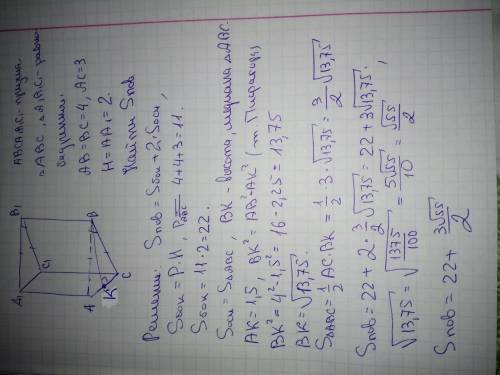 ABCA₁B₁C₁ - призма.
△ABC, △A₁B₁C₁ - равно-
бедренные.
AB=BC=4, AC=3
H=AA₁=2.
Найти Sпов
A₁
B₁
C₁
A
B
K
C
Решение: Sпов = Sбок + 2·Sосн,
Sбок = P·H, P△ABC = 4+4+3=11.
Sбок = 11·2=22.
Sосн = S△ABC, BK - высота, медиана △ABC.
AK=1,5, BK²=AB²-AK² (т. Пифагора)
BK²=4²-1,5²=16-2,25=13,75
BK=√13,75.
S△ABC=½AC·BK=½·3·√13,75=3/2√13,75
Sпов=22+2·3/2√13,75=22+3√13,75.
√13,75=√1375/100=5√55/10=√55/2;
Sпов=22+3√55/2